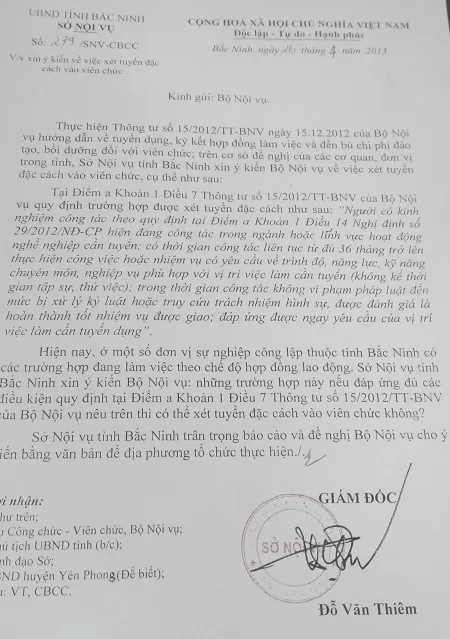 UBND TỈNH BẮC NINH
SỞ NỘI VỤ
Số: 279 /SNV-CBCC
V/v xin ý kiến về việc xét tuyển đặc
cách vào viên chức
CỘNG HOÀ XÃ HỘI CHỦ NGHĨA VIỆT NAM
Độc lập - Tự do - Hạnh phúc
Bắc Ninh, ngày 26 tháng 4 năm 2013
Kính gửi: Bộ Nội vụ.
Thực hiện Thông tư số 15/2012/TT-BNV ngày 15.12.2012 của Bộ Nội
vụ hướng dẫn về tuyển dụng, ký kết hợp đồng làm việc và đền bù chi phí đào
tạo, bồi dưỡng đối với viên chức; trên cơ sở đề nghị của các cơ quan, đơn vị
trong tỉnh, Sở Nội vụ tỉnh Bắc Ninh xin ý kiến Bộ Nội vụ về việc xét tuyển
đặc cách vào viên chức, cụ thể như sau:
Tại Điểm a Khoản 1 Điều 7 Thông tư số 15/2012/TT-BNV của Bộ Nội
vụ quy định trường hợp được xét tuyển đặc cách như sau: “Người có kinh
nghiệm công tác theo quy định tại Điểm a Khoản 1 Điều 14 Nghị định số
29/2012/NĐ-CP hiện đang công tác trong ngành hoặc lĩnh vực hoạt động
nghề nghiệp cần tuyển; có thời gian công tác liên tục từ đủ 36 tháng trở lên
thực hiện công việc hoặc nhiệm vụ có yêu cầu về trình độ, năng lực, kỹ năng
chuyên môn, nghiệp vụ phù hợp với vị trí việc làm cần tuyển (không kể thời
gian tập sự, thử việc); trong thời gian công tác không vi phạm pháp luật đến
mức bị xử lý kỷ luật hoặc truy cứu trách nhiệm hình sự, được đánh giá là
hoàn thành tốt nhiệm vụ được giao; đáp ứng được ngay yêu cầu của vị trí
việc làm cần tuyển dụng”.
Hiện nay, ở một số đơn vị sự nghiệp công lập thuộc tỉnh Bắc Ninh có
các trường hợp đang làm việc theo chế độ hợp đồng lao động. Sở Nội vụ tỉnh
Bắc Ninh xin ý kiến Bộ Nội vụ: những trường hợp này nếu đáp ứng đủ các
điều kiện quy định tại Điểm a Khoản 1 Điều 7 Thông tư số 15/2012/TT-BNV
của Bộ Nội vụ nêu trên thì có thể xét tuyển đặc cách vào viên chức không?
Sở Nội vụ tỉnh Bắc Ninh trân trọng báo cáo và đề nghị Bộ Nội vụ cho ý
iến bằng văn bản để địa phương tổ chức thực hiện./.
ơi nhận:
hư trên;
ụ Công chức - Viên chức, Bộ Nội vụ;
hủ tịch UBND tỉnh (b/c);
nh đạo Sở;
BND huyện Yên Phong(Để biết);
u: VT, CBCC.
GIÁM ĐỐC
SỞ NỘI
Đỗ Văn Thiêm